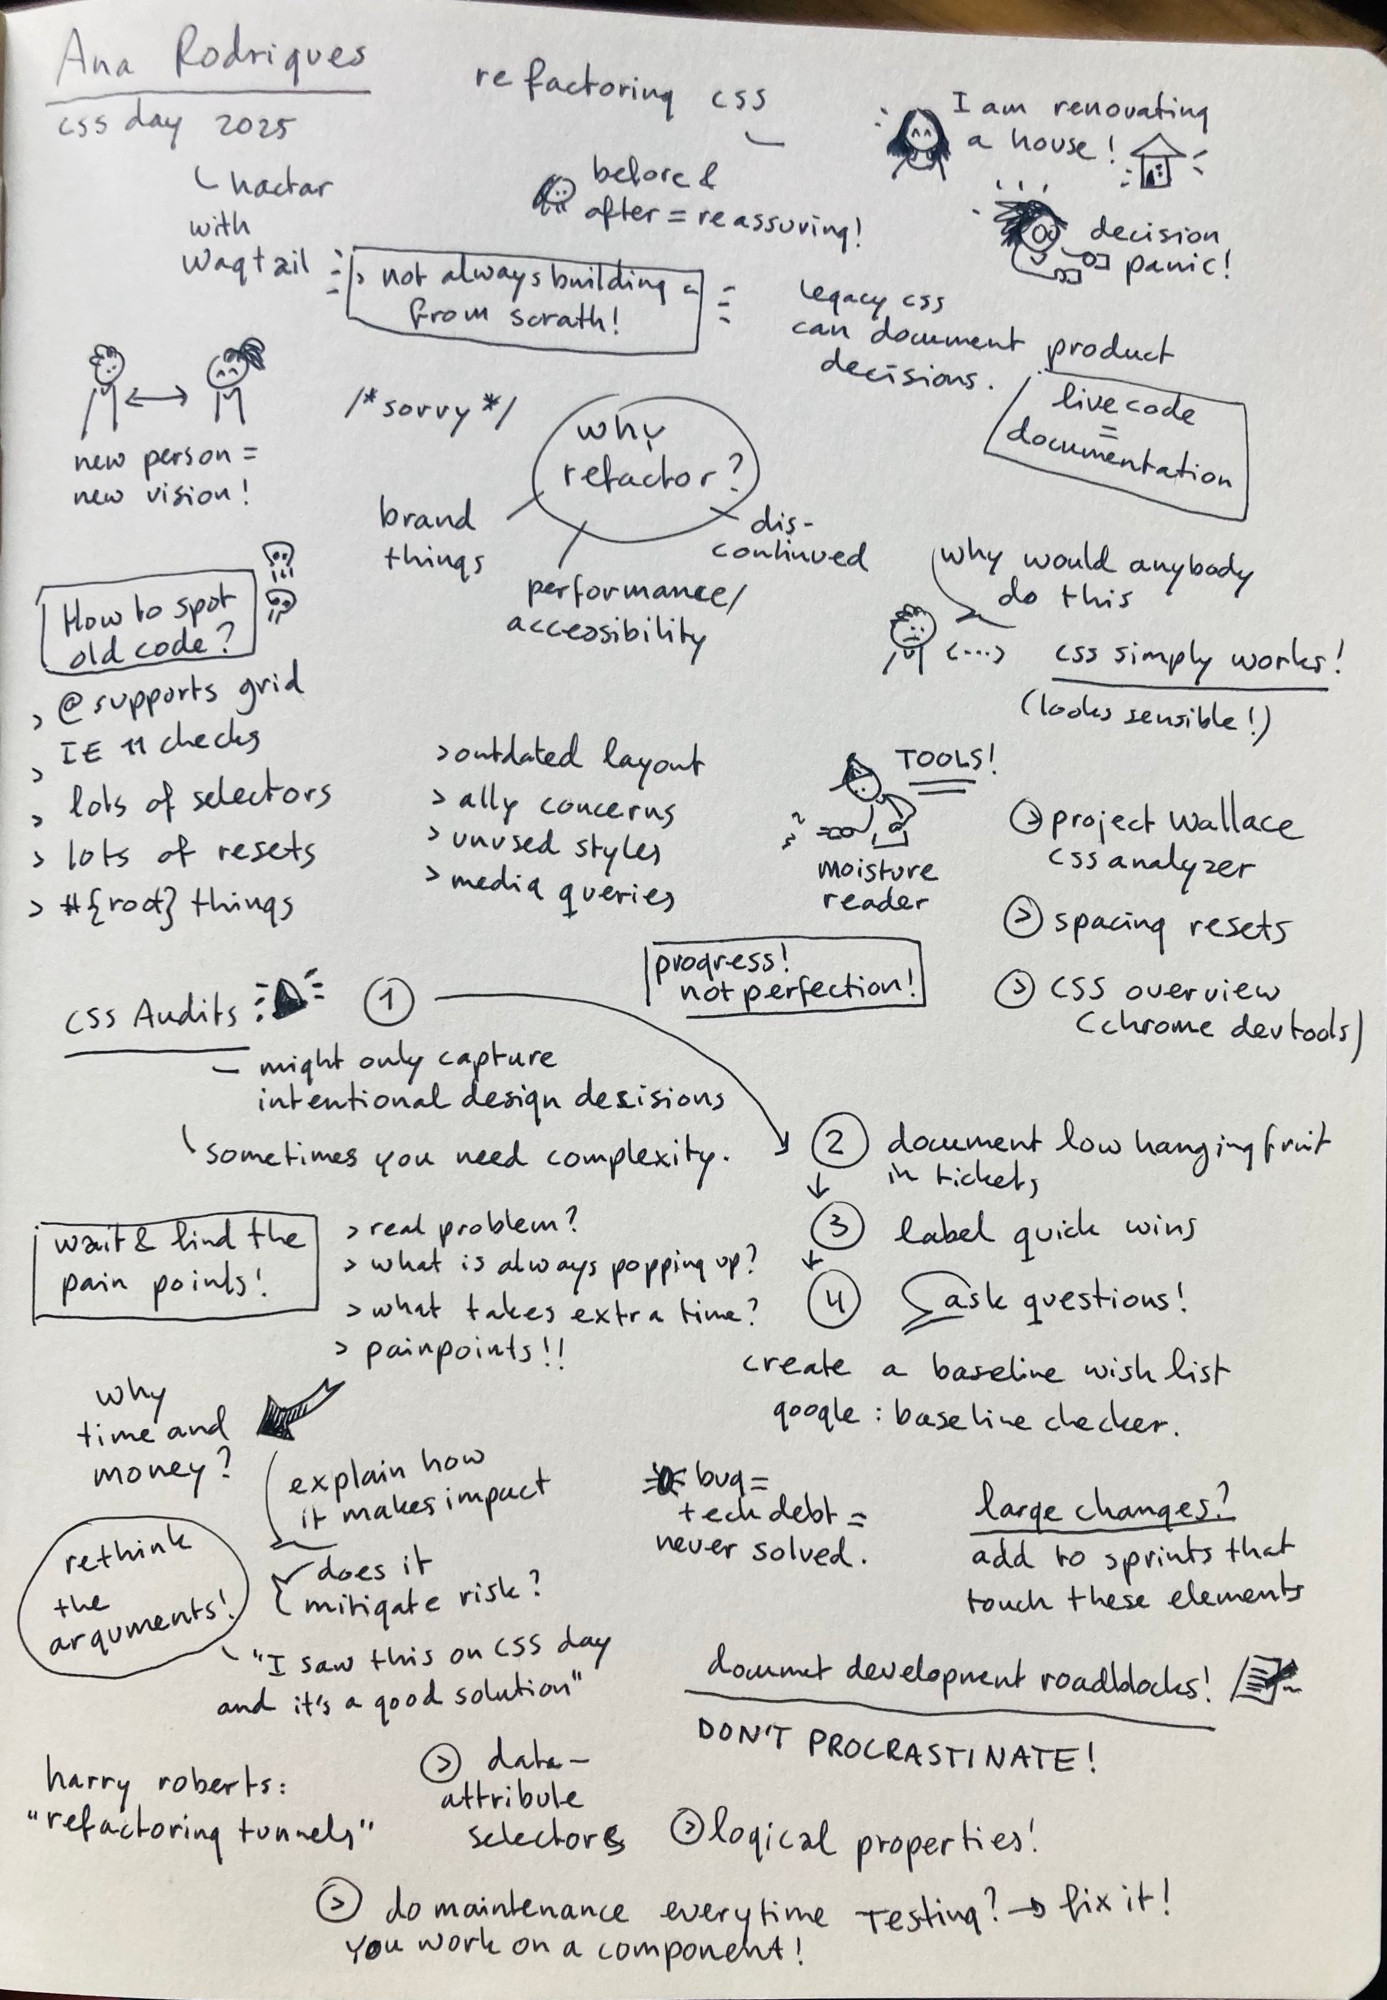 Ana Rodrigues
css day 2025
refactoring css
I am renovating
a house!
hactar
with
Wagtail
before &
after = reassuring!
decision
panic!
> not always building
from scrath!
legacy css
can document product
decisions.
live code
=
documentation
new person =
new vision!
/*sorry*/
why
refactor?
brand
things
performance/
accessibility
dis-
continued
why would anybody
do this
<...>
css simply works!
(looks sensible!)
How to spot
old code?
> @supports grid
> IE 11 checks
> lots of selectors
> lots of resets
> #{root} things
> outdated layout
> ally concerns
> unused styles
> media queries
TOOLS!
moisture
reader
> project Wallace
css analyzer
> spacing resets
> CSS overview
(chrome devtools)
progress!
not perfection!
CSS Audits
1
– might only capture
intentional design desisions
sometimes you need complexity.
2 document low hanging fruit
in tickets
3 label quick wins
4 ask questions!
create a baseline wish list
google : baseline checker.
wait & find the
pain points!
> real problem?
> what is always popping up?
> what takes extra time?
> painpoints!!
why
time and
money?
explain how
it makes impact
does it
mitigate risk?
rethink
the
arguments!
"I saw this on CSS day
and it's a good solution"
bug =
tech debt =
never solved.
large changes?
add to sprints that
touch these elements
documet development roadblocks!
DON'T PROCRASTINATE!
harry roberts:
"refactoring tunnels"
> data-
attribute
selectors
> logical properties!
> do maintenance everytime
you work on a component!
Testing? → fix it!